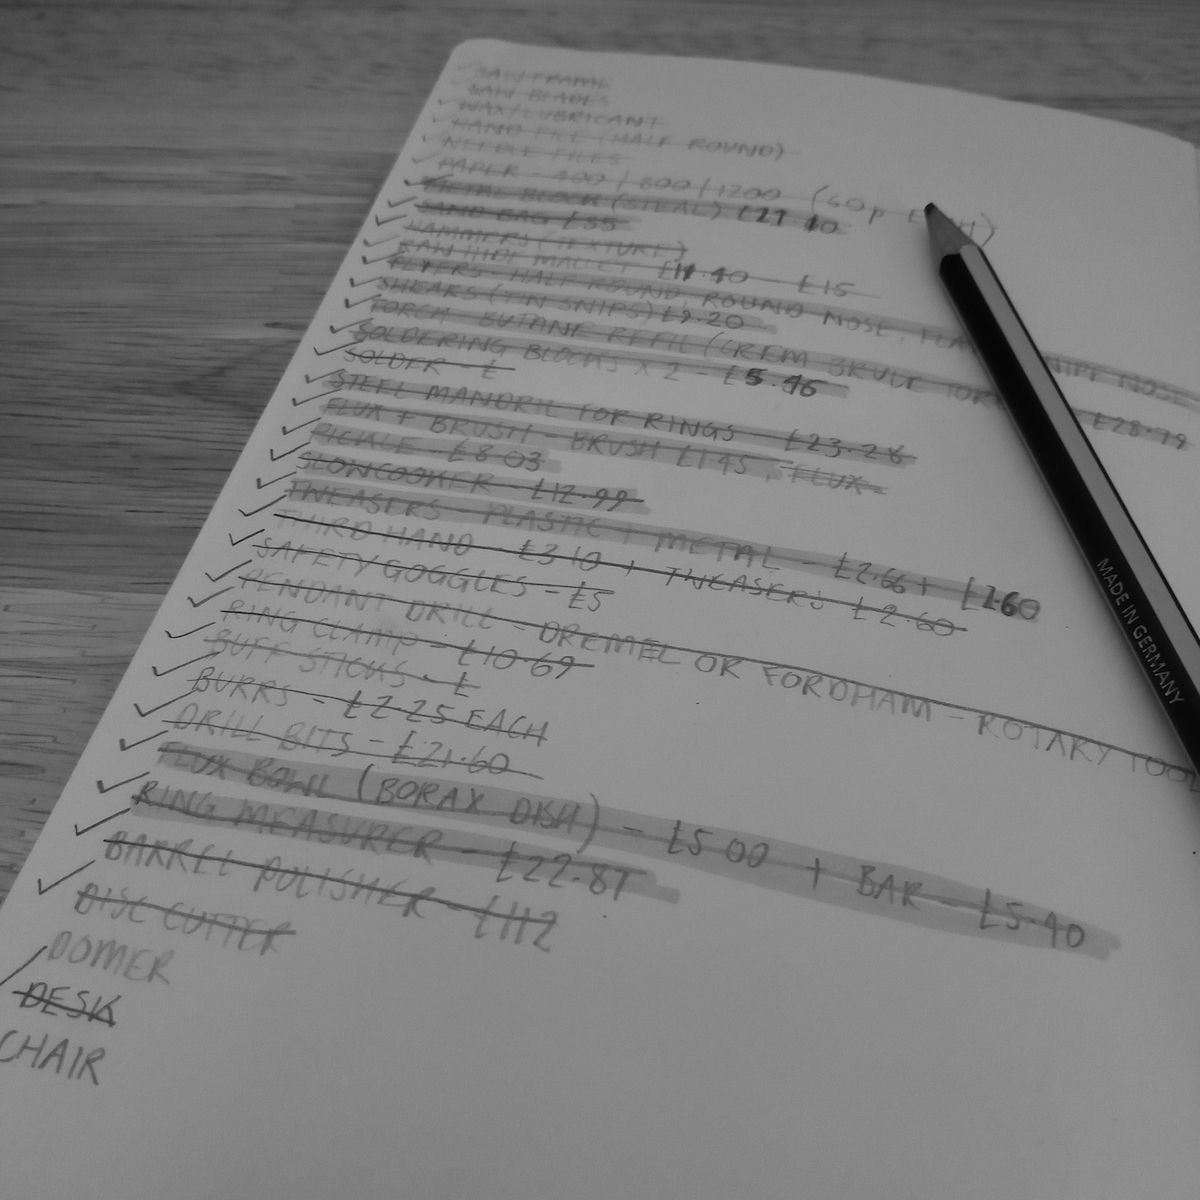 SAW FRAME
SAW BLADES
WAX/LUBRICANT
HAND FILE (HALF ROUND)
NEEDLE FILES
PAPER - 400 / 800 / 1200 (60p EACH)
METAL BLOCK (STEAL) £27.40
SAND BAG £35
HAMMERS (TEXTURE)
RAW HIDE MALLET £11.40 - £15
PLYERS - HALF ROUND, ROUND NOSE, NOSE
SHEARS (TIN SNIPS) £9.20
TORCH - BUTANE REFIL (CREM BRULE £28.79
SOLDERING BLOCKS X 2 - £5.46
SOLDER - £
STEEL MANDRIL FOR RINGS - £23.28
FLUX + BRUSH - BRUSH £1.45, FLUX -
PICKLE - £8.03
SLOWCOOKER - £12.99
TWEASERS - PLASTIC + METAL - £2.66 + £2.60
THIRD HAND - £3.10 + TWEASERS £2.60
SAFETY GOGGLES - £5
PENDANT DRILL - DREMEL OR FORDHAM - ROTARY TOOL
RING CLAMP - £10.69
BUFF STICKS - £
BURRS - £2.25 EACH
DRILL BITS - £21.60
FLUX BOWL (BORAX DISH) - £5.00 + BAR - £5.40
RING MEASURER - £22.87
BARREL POLISHER - £112
DISC CUTTER
DOMER
DESK
CHAIR
MADE IN GERMANY